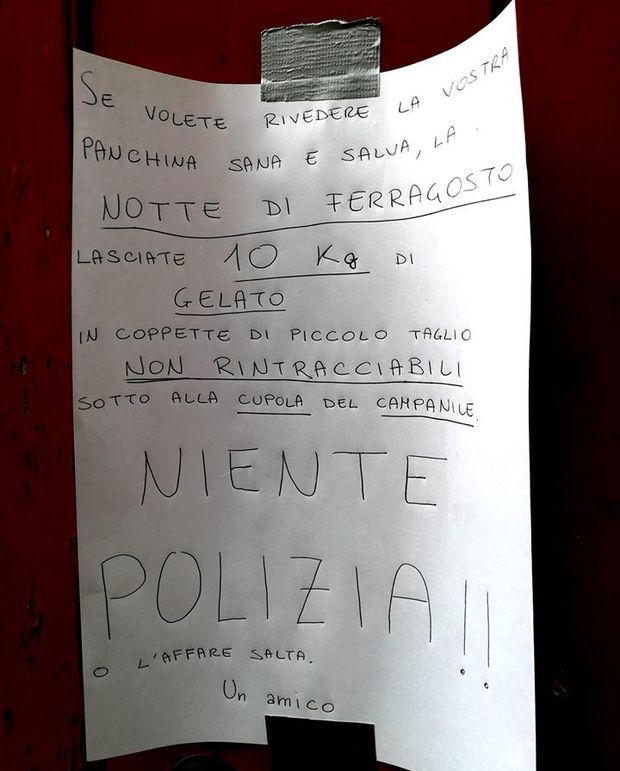 SE VOLETE RIVEDERE LA VOSTRA
PANCHINA SANA E SALVA, LA
NOTTE DI FERRAGOSTO
LASCIATE 10 Kg DI
GELATO
IN COPPETTE DI PICCOLO TAGLIO
NON RINTRACCIABILI
SOTTO ALLA CUPOLA DEL CAMPANILE.
NIENTE
POLIZIA!!
O L'AFFARE SALTA.
Un amico